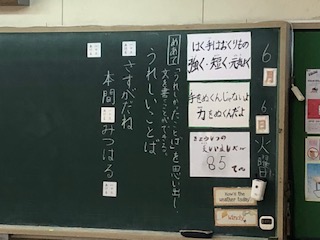 6月6日火曜
はく手はおくりもの
強く・短く・元気に
手をぬくんじゃないよ
力をぬくんだよ
85
てん
How's the weather today?
windy
めあて
「うれしかったことば」を思い出し、
文を書くことができる。
うれしいことば
さすがだね
本間 みつはる